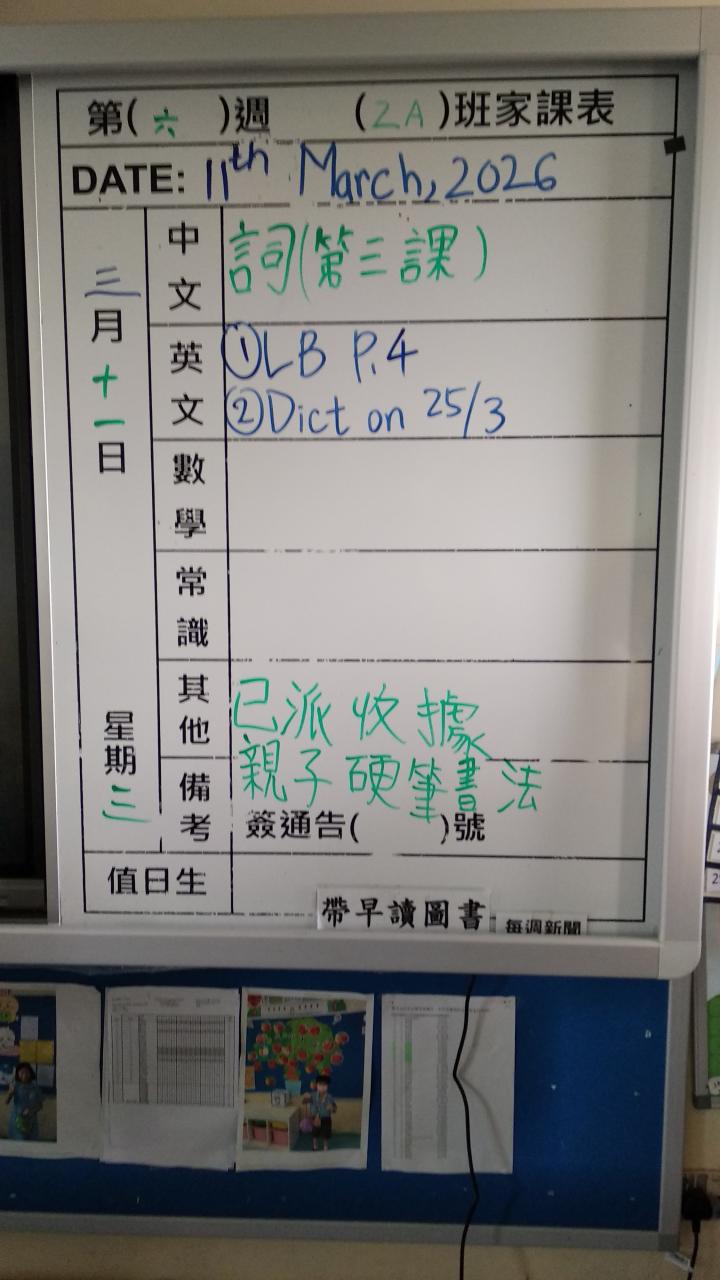 第(六)週 (2A)班家課表
DATE: 11th March, 2026
三月十一日
星期三
中文
詞(第三課)
英文
①LB P.4
②Dict on 25/3
數學
常識
其他
已派收據
親子硬筆書法
備考
簽通告( )號
值日生
帶早讀圖書
每週新聞